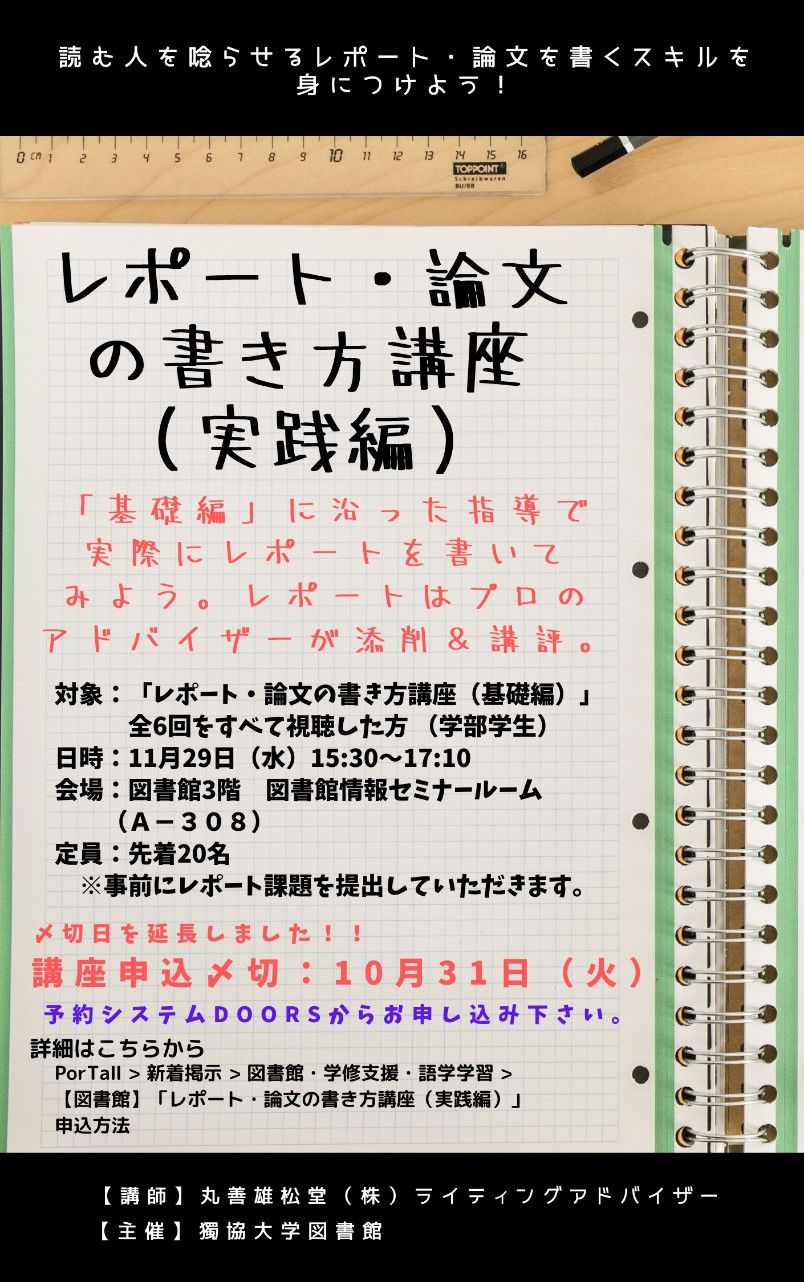 読む人を唸らせるレポート・論文を書くスキルを
身につけよう！
0 cm 1 2 3 4 5 6 7 8 9 10 11 12 13 14 15 16
TOPPOINT
Schreibwaren
BU/BB
レポート・論文
の書き方講座
（実践編）
「基礎編」に沿った指導で
実際にレポートを書いて
みよう。レポートはプロの
アドバイザーが添削＆講評。
対象：「レポート・論文の書き方講座（基礎編）」
全6回をすべて視聴した方 （学部学生）
日時：11月29日（水）15:30～17:10
会場：図書館3階　図書館情報セミナールーム
（Ａ－３０８）
定員：先着20名
※事前にレポート課題を提出していただきます。
〆切日を延長しました！！
講座申込〆切：10月31日（火）
予約システムDOORSからお申し込み下さい。
詳細はこちらから
PorTall > 新着掲示 > 図書館・学修支援・語学学習 >
【図書館】「レポート・論文の書き方講座（実践編）」
申込方法
【講師】丸善雄松堂（株）ライティングアドバイザー
【主催】獨協大学図書館